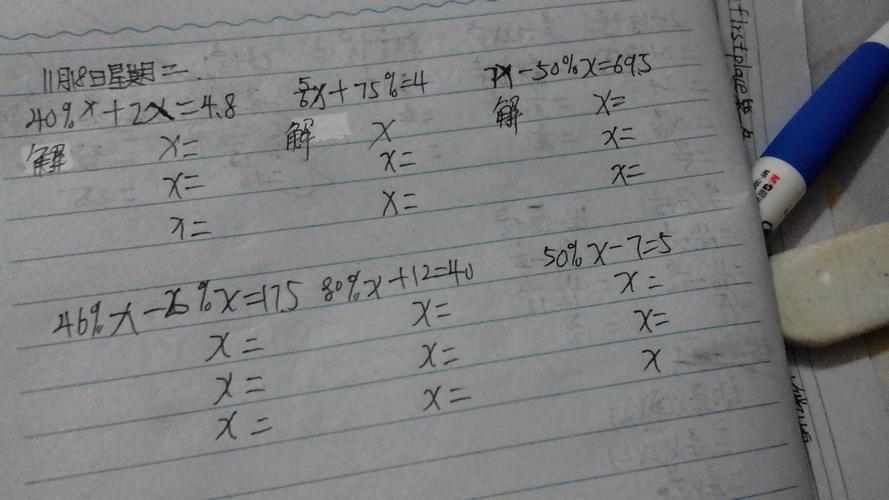 11月18日星期二.
40%x+2x=4.8
5/6x+75%=4
-50%x=69.5
解 x=
解 x
x=
x=
x=
x=
x=
x=
x=
46%x- %x=17.5
80%x+12=40
50%x-7=5
x=
x=
x=
x=
x=
x
x=
x=
x=
first place